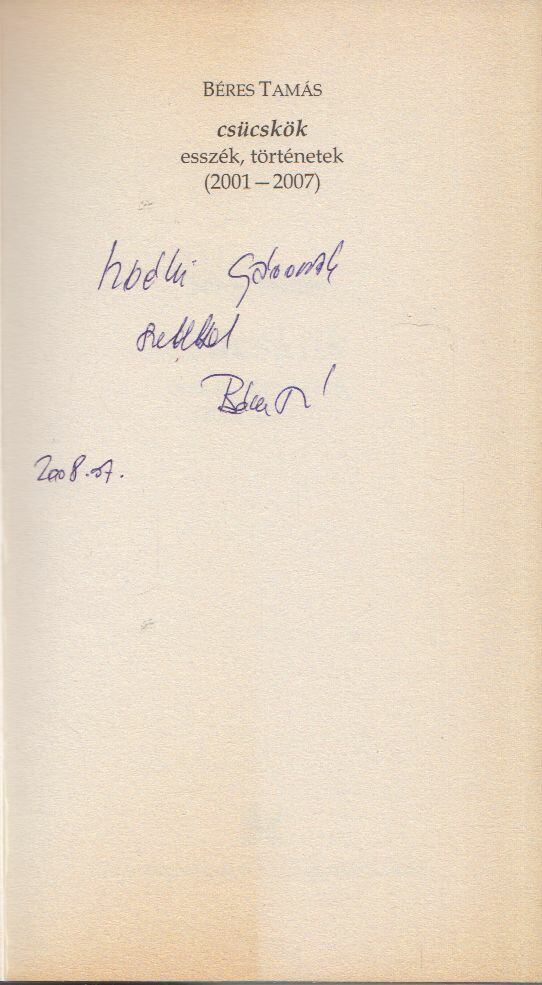 BÉRES TAMÁS
csücskök
esszék, történetek
(2001—2007)
Gábornak
szeretettel
Béres T
2008. 07.